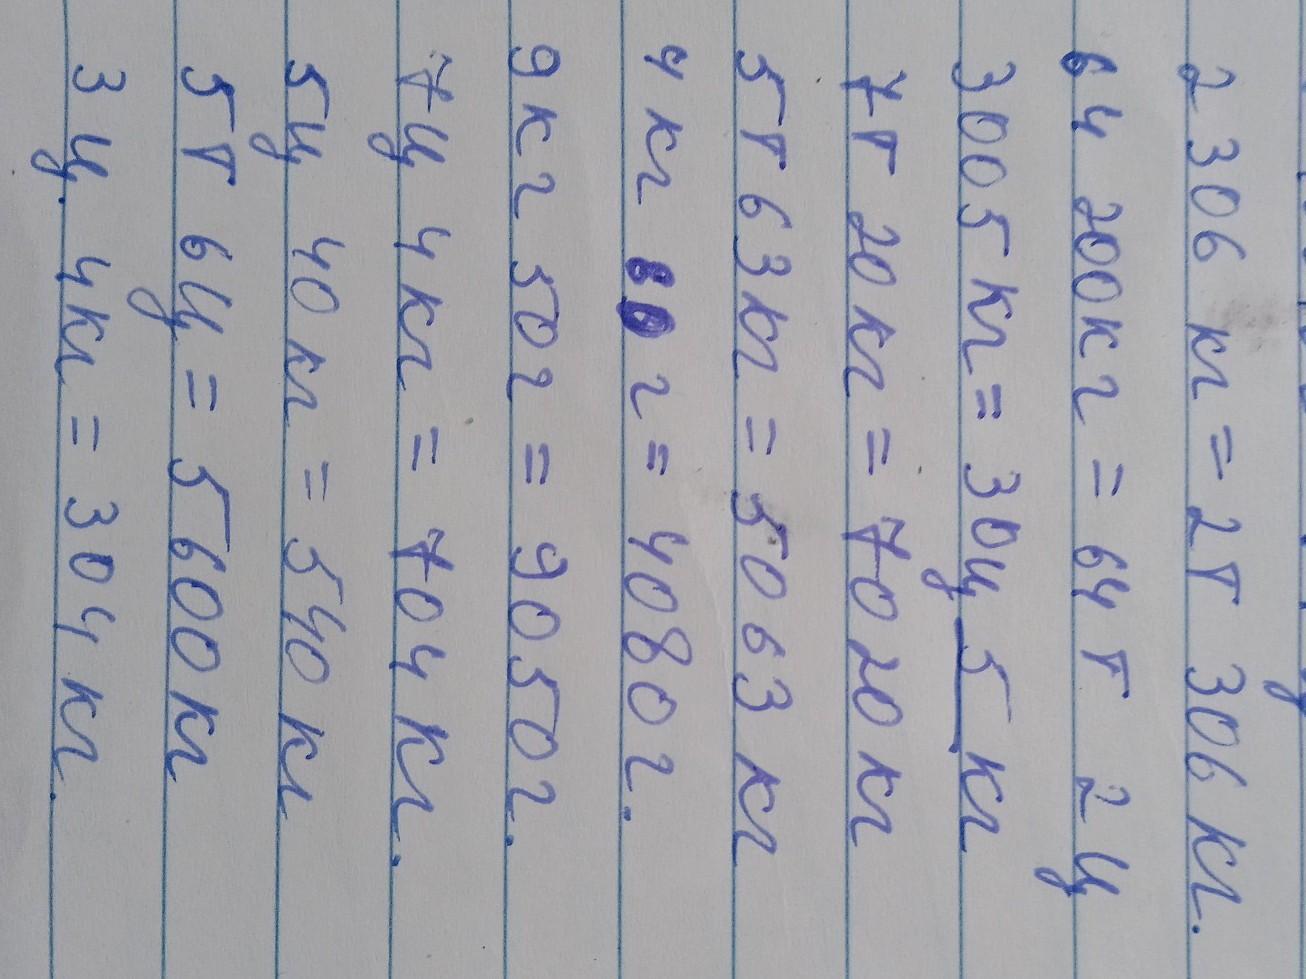 2 306 кг = 2т 306 кг.
64 200кг = 64т 2ц
3005кг = 30ц 5кг
7т 20кг = 7020кг
5т 63кг = 5063кг
4кг 80г = 4080г.
9кг 50г = 9050г.
7ц 4кг = 704кг.
5ц 40кг = 540кг
5т 6ц = 5600кг
3ц. 4кг = 304кг.